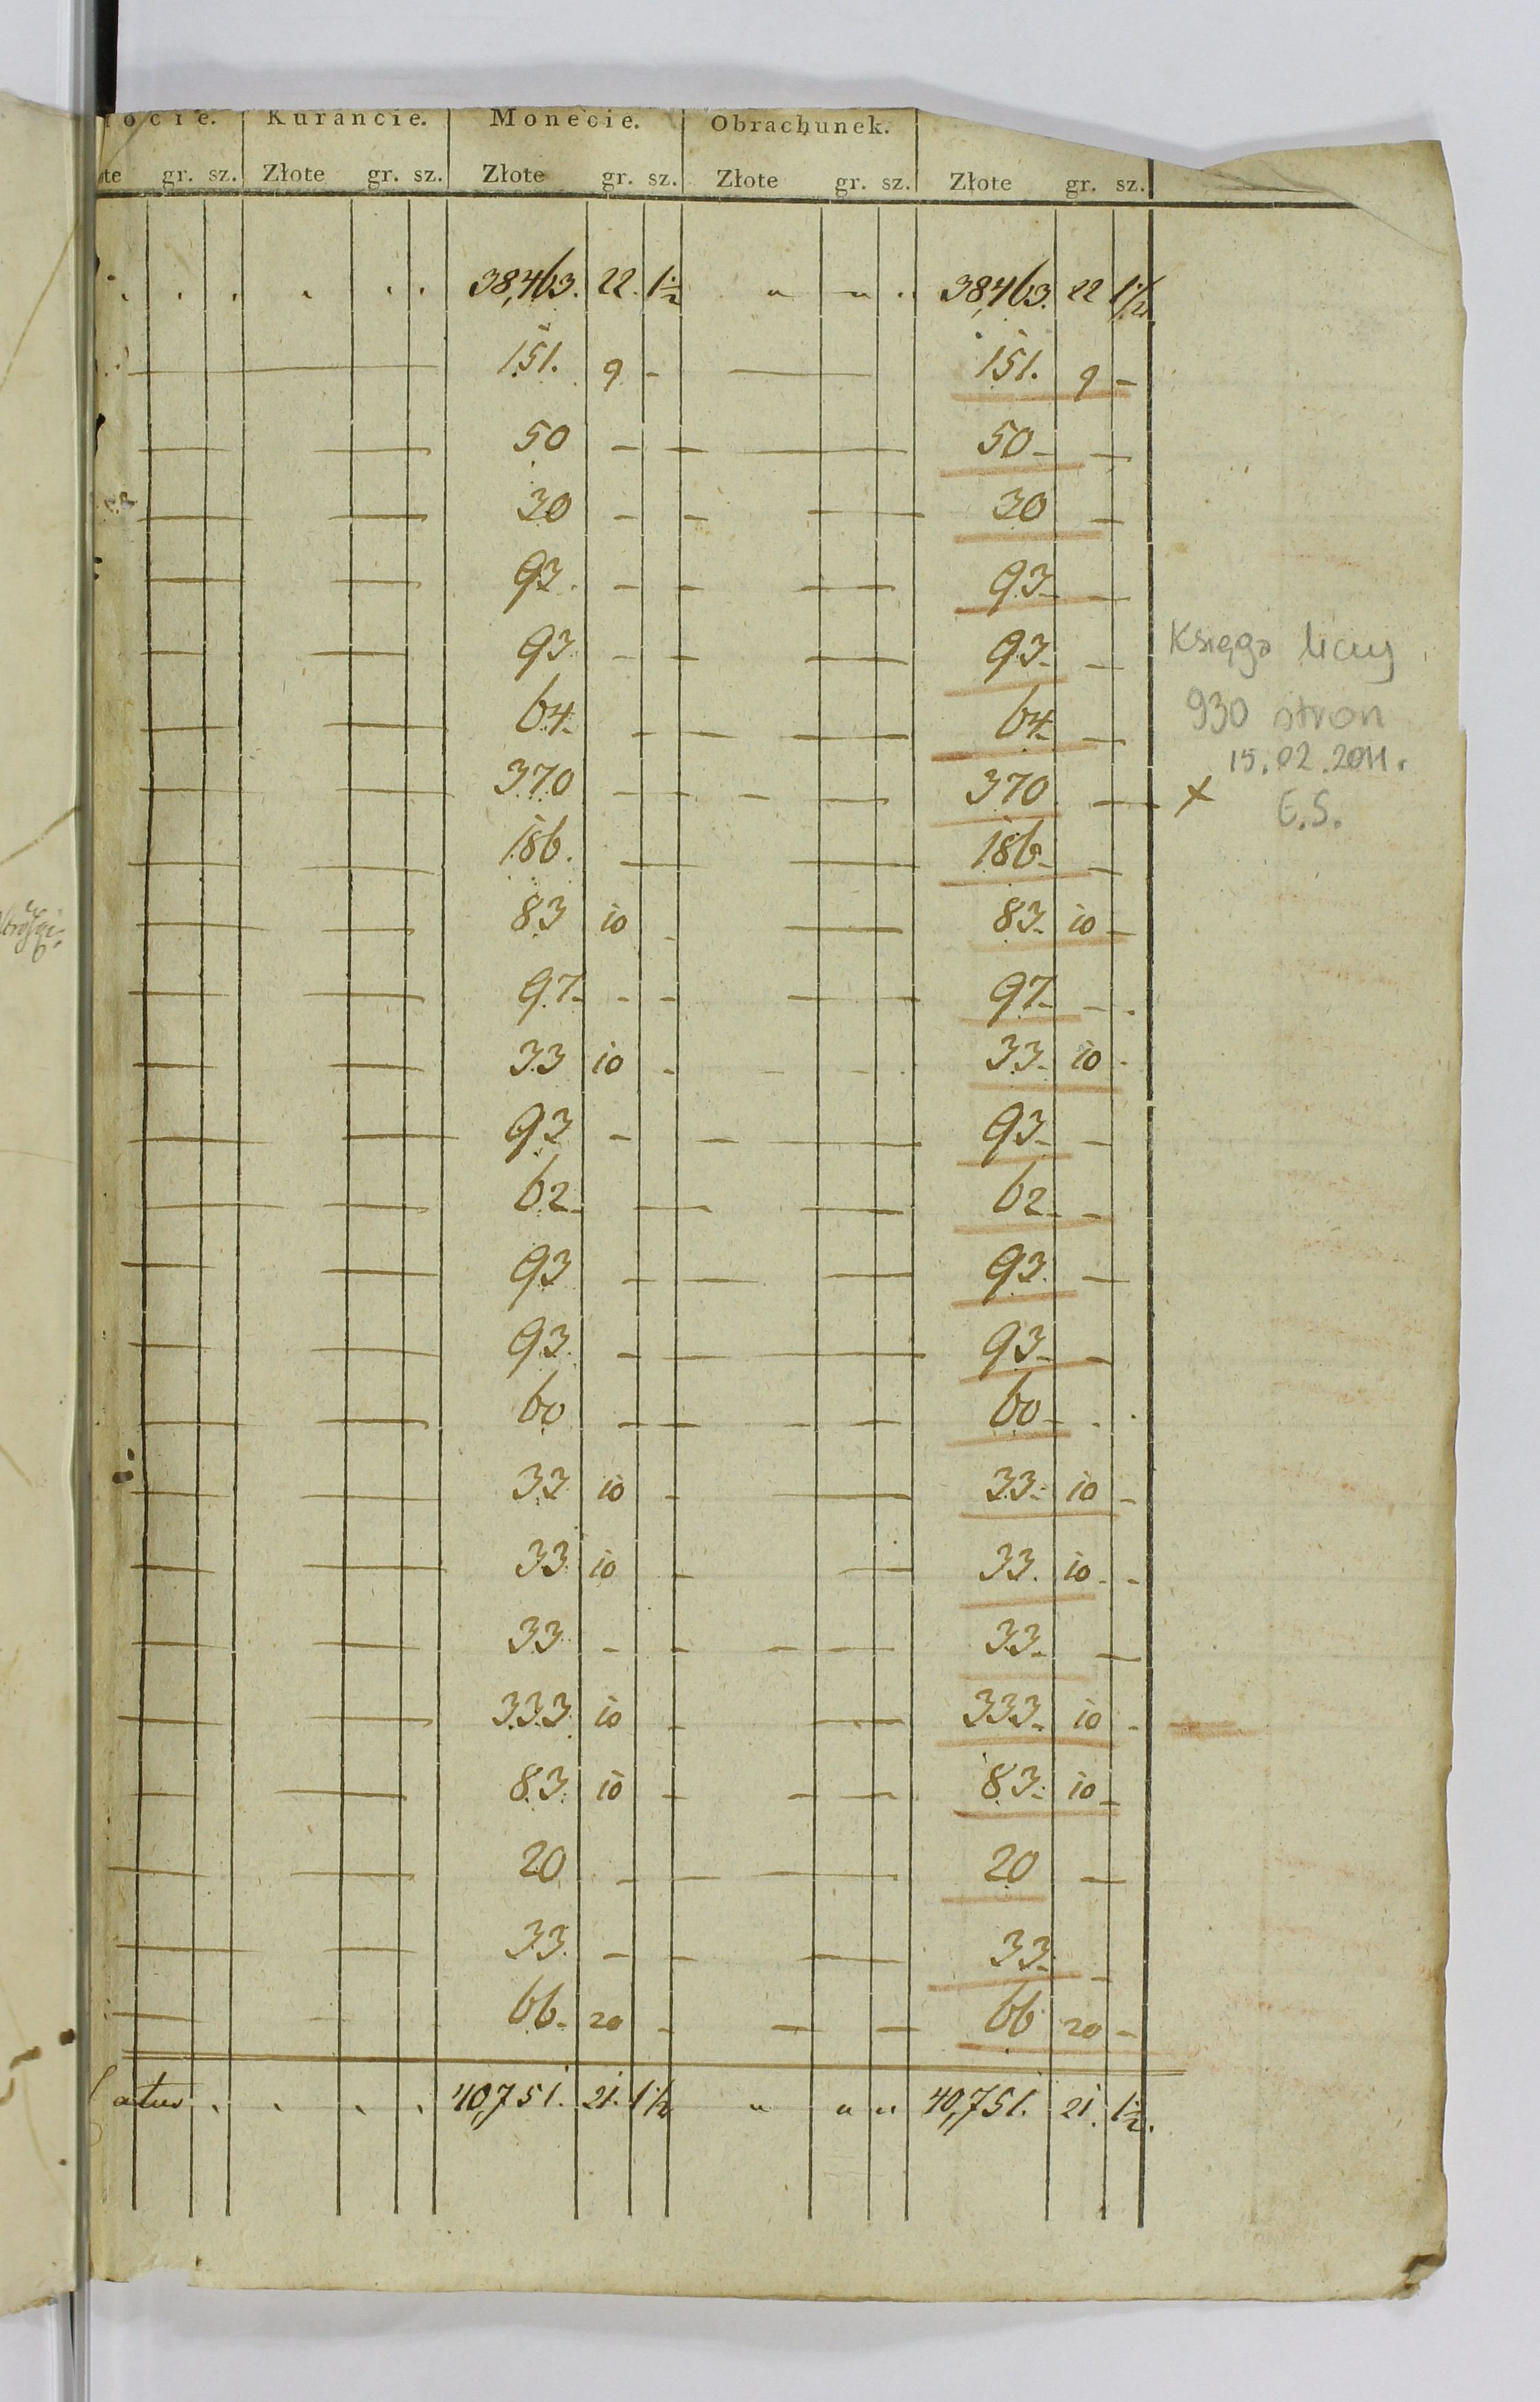 ocie. Kurancie. Monecie. Obrachunek.
gr. sz. Złote gr. sz. Złote gr. sz. Złote gr. sz. Złote gr. sz.
38,463. 22. 1½ " " " 38,463. 22 1½
151. 9 - — 151. 9 -
50 - - — 50 - -
30 - - — 30 -
93. - - — 93 - -
93 - - — 93 - -
64 - - — 64 - -
370 - - — 370 - -
186. — — 186 - -
83 10 - — 83. 10 -
97 - - - — 97 - - -
33 10 - - - 33. 10 -
93 - - — 93 - -
62 - — — 62 - -
93 - - — 93. -
93. - - — 93 - -
60 - - - - 60 - - -
33 10 - — 33. 10 -
33 10 - — 33. 10 - -
33 - - - - 33 - -
333 10 - — 333. 10 -
83. 10 - - - 83. 10 -
20 - - — 20 -
33. - - — 33 - -
66. 20 - - - 66 20 -
Latus 40,751. 21. 1½ " " " 40,751. 21. 1½.
Księga liczy
930 stron
15.02.2011.
x E.S.